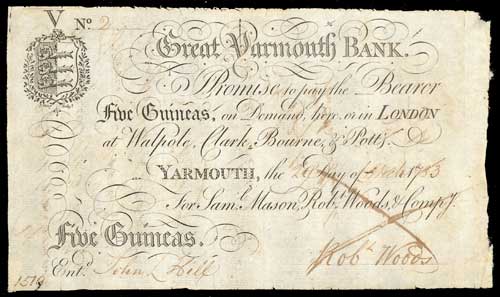 V Nº 2
Great Yarmouth BANK.
I Promise to pay the Bearer
Five Guineas, on Demand, here, or in LONDON
at Walpole, Clark, Bourne, & Pott's.
YARMOUTH, the day of 1783
For Saml. Mason, Robt. Woods, & Compy.
Five Guineas.
Entd. John Hill
Robt Woods